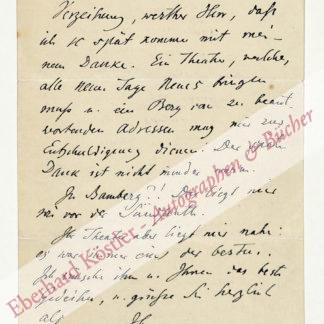 Verzeihung, werther Herr, daß
ich so spät komme mit mei-
nem Danke. Ein Theater, welches
alle neun Tage Neues bringen
muß u. ein Berg von zu beant-
wortenden Adressen mag mir zur
Entschuldigung dienen. Der späte
Dank ist nicht minder
In Bamberg?! liegt mir
vor der
Ihr Theater liegt mir nahe:
es war immer eins der besten.
Ich wünsche ihm u. Ihnen das beste
Gedeihen, u. grüße Sie herzlich
als
Eberhard Köstler · Autographen & Bücher